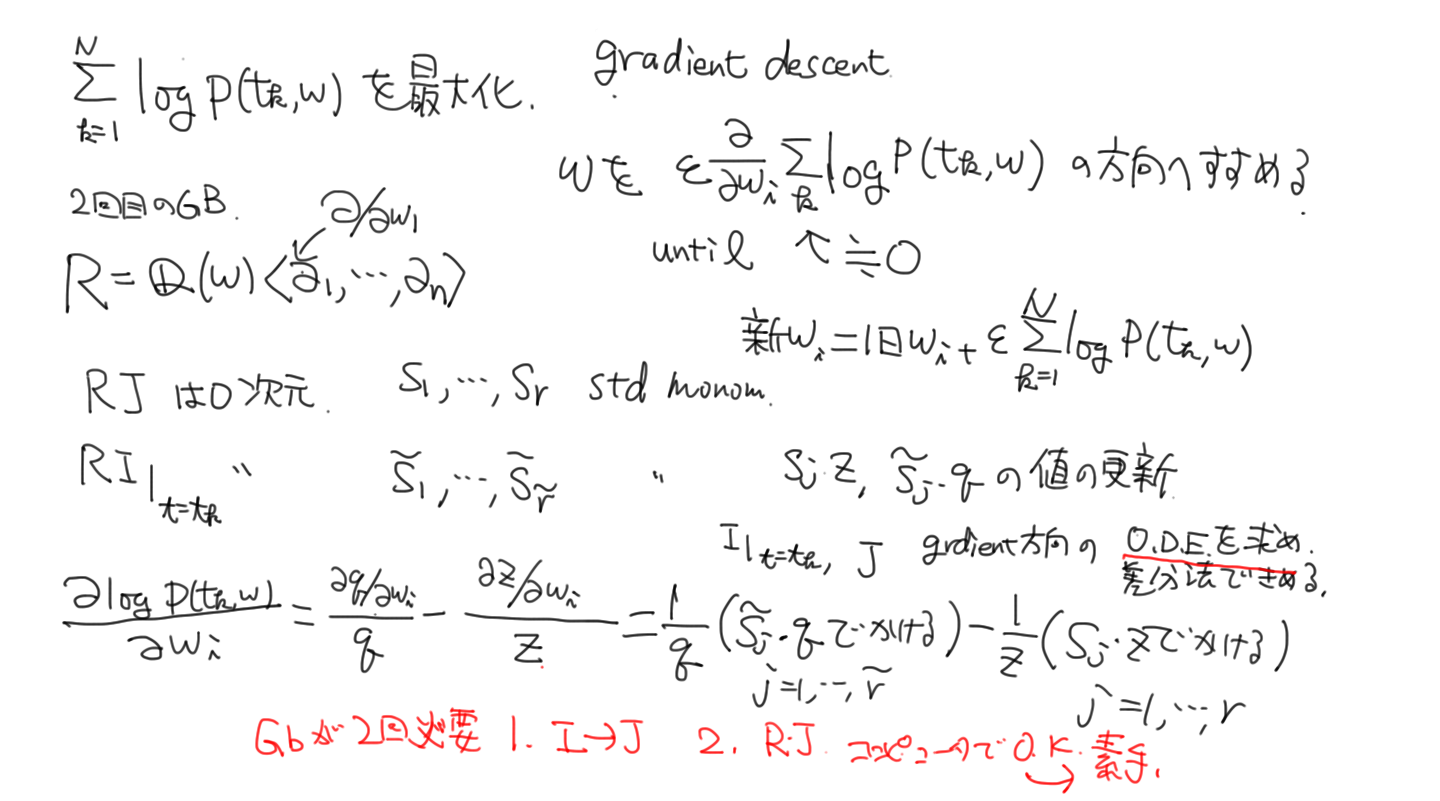 $\sum_{k=1}^{N} \log P(t_k, w)$ を最大化.
gradient descent.
wを $\varepsilon \frac{\partial}{\partial w_i} \sum_k \log P(t_k, w)$ の方向へすすめる.
until ↖ ≒ 0
新$w_i$ = 旧$w_i$ + $\varepsilon \sum_{k=1}^{N} \log P(t_k, w)$
2回目のGB.
∂/∂$w_1$
R = ℚ(w)⟨$\partial_1$, ⋯, $\partial_n$⟩
RJ は0次元. $S_1$, ⋯, $S_r$ std monom.
RI|$_{t=t_k}$ 〃 $\tilde{S}_1$, ⋯, $\tilde{S}_{\tilde{r}}$ 〃
$S_j$・Z, $\tilde{S}_j$・q の値の更新
I|$_{t=t_k}$, J grdient方向の O.D.E.を求め.
差分法できめる.
$\frac{\partial \log P(t_k, w)}{\partial w_i} = \frac{\partial q/\partial w_i}{q} - \frac{\partial Z/\partial w_i}{Z} = \frac{1}{q}(\tilde{S}_j・q でかける) - \frac{1}{Z}(S_j・Z でかける)$
j = 1, ⋯, $\tilde{r}$
j = 1, ⋯, r
Gbが2回必要 1. I→J 2. RJ. コンピュータでO.K. 素手.